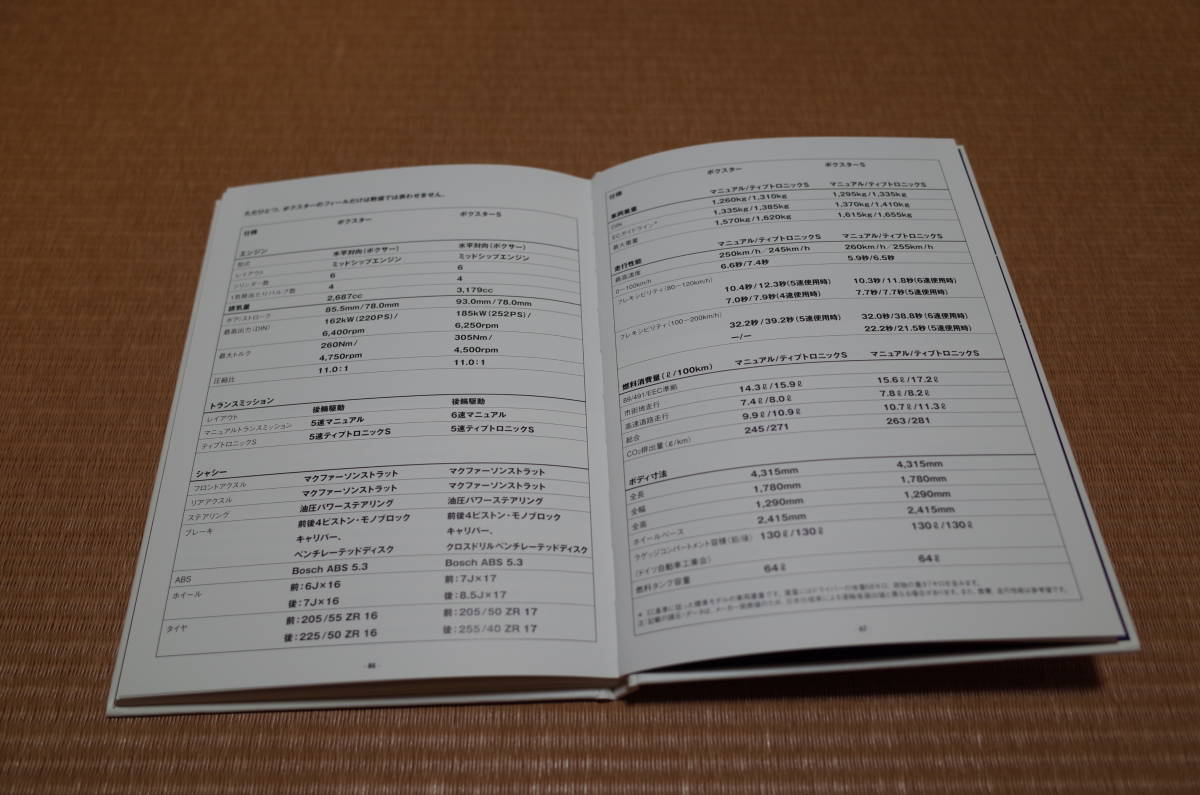 ただひとつ、ボクスターのフィールだけは数値では表わせません。
仕様 ボクスター ボクスターS
エンジン
形式 水平対向(ボクサー) 水平対向(ボクサー)
レイアウト ミッドシップエンジン ミッドシップエンジン
シリンダー数 6 6
1気筒当たりバルブ数 4 4
排気量 2,687cc 3,179cc
ボア/ストローク 85.5mm/78.0mm 93.0mm/78.0mm
最高出力(DIN) 162kW(220PS)/ 185kW(252PS)/
6,400rpm 6,250rpm
最大トルク 260Nm/ 305Nm/
4,750rpm 4,500rpm
圧縮比 11.0:1 11.0:1
トランスミッション
レイアウト 後輪駆動 後輪駆動
マニュアルトランスミッション 5速マニュアル 6速マニュアル
ティプトロニックS 5速ティプトロニックS 5速ティプトロニックS
シャシー
フロントアクスル マクファーソンストラット マクファーソンストラット
リアアクスル マクファーソンストラット マクファーソンストラット
ステアリング 油圧パワーステアリング 油圧パワーステアリング
ブレーキ 前後4ピストン・モノブロック 前後4ピストン・モノブロック
キャリパー、 キャリパー、
ベンチレーテッドディスク クロスドリルベンチレーテッドディスク
ABS Bosch ABS 5.3 Bosch ABS 5.3
ホイール 前:6J×16 前:7J×17
後:7J×16 後:8.5J×17
タイヤ 前:205/55 ZR 16 前:205/50 ZR 17
後:225/50 ZR 16 後:255/40 ZR 17
仕様 ボクスター ボクスターS
車両重量 マニュアル/ティプトロニックS マニュアル/ティプトロニックS
DIN 1,260kg/1,310kg 1,295kg/1,335kg
ECガイドライン* 1,335kg/1,385kg 1,370kg/1,410kg
最大重量 1,570kg/1,620kg 1,615kg/1,655kg
走行性能 マニュアル/ティプトロニックS マニュアル/ティプトロニックS
最高速度 250km/h/245km/h 260km/h/255km/h
0－100km/h 6.6秒/7.4秒 5.9秒/6.5秒
フレキシビリティ(80－120km/h) 10.4秒/12.3秒(5速使用時) 10.3秒/11.8秒(6速使用時)
7.0秒/7.9秒(4速使用時) 7.7秒/7.7秒(5速使用時)
フレキシビリティ(100－200km/h) 32.2秒/39.2秒(5速使用時) 32.0秒/38.8秒(6速使用時)
－/－ 22.2秒/21.5秒(5速使用時)
燃料消費量(ℓ/100km) マニュアル/ティプトロニックS マニュアル/ティプトロニックS
89/491/EEC準拠
市街地走行 14.3ℓ/15.9ℓ 15.6ℓ/17.2ℓ
高速道路走行 7.4ℓ/8.0ℓ 7.8ℓ/8.2ℓ
総合 9.9ℓ/10.9ℓ 10.7ℓ/11.3ℓ
CO₂排出量(g/km) 245/271 263/281
ボディ寸法
全長 4,315mm 4,315mm
全幅 1,780mm 1,780mm
全高 1,290mm 1,290mm
ホイールベース 2,415mm 2,415mm
ラゲッジコンパートメント容積(前/後) 130ℓ/130ℓ 130ℓ/130ℓ
(ドイツ自動車工業会)
燃料タンク容量 64ℓ 64ℓ